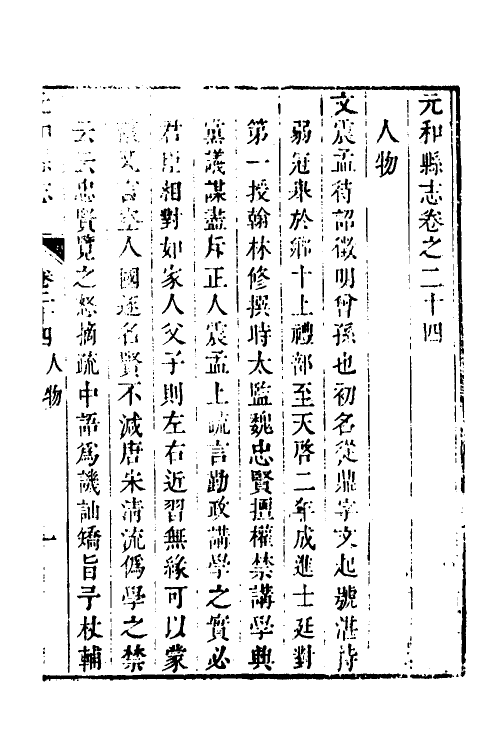 元和縣志卷之二十四
人物
文震孟待詔徵明曾孫也初名從鼎字文起號湛持
弱冠舉於鄉十上禮部至天啓二年成進士廷對
第一授翰林修撰時太監魏忠賢擅權禁講學興
黨議謀盡斥正人震孟上疏言勤政講學之實必
君臣相對如家人父子則左右近習無緣可以蒙
蔽又言空人國逐名賢不減唐宋清流僞學之禁
云云忠賢覽之怒摘疏中語爲譏訕矯旨予杖輔
元和縣志
卷二十四人物
一